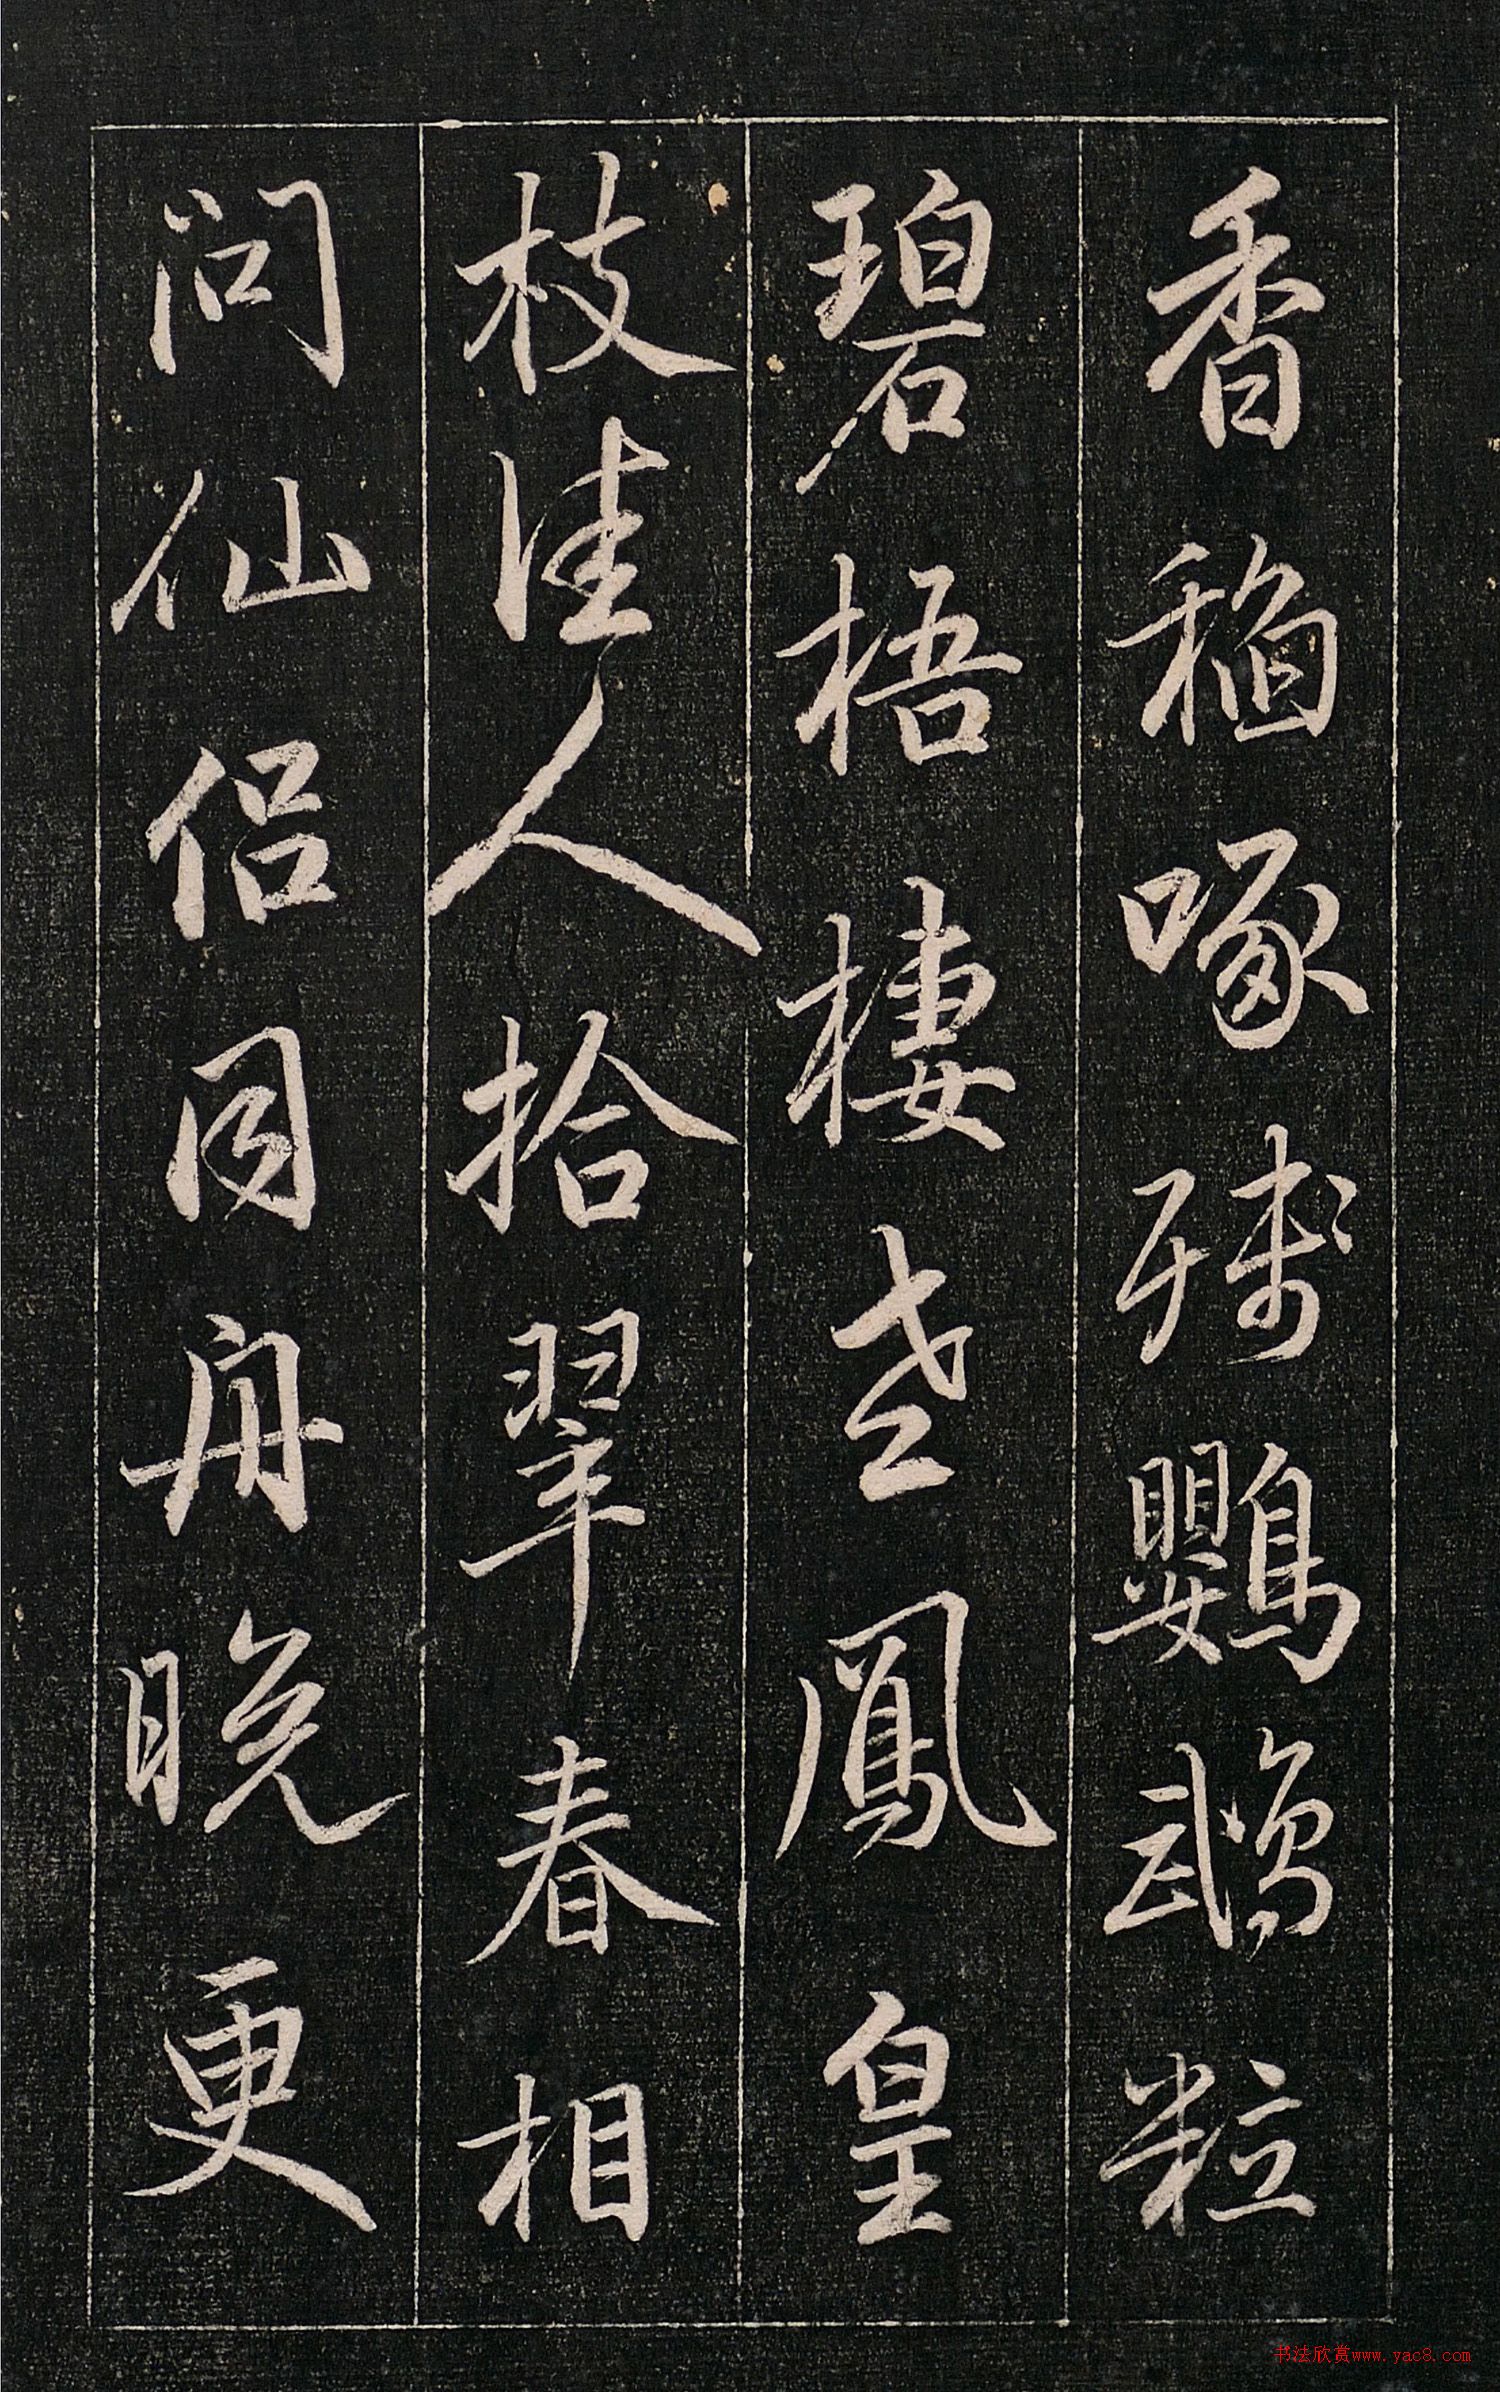 香稻啄殘鸚鵡粒
碧梧棲老鳳皇
枝佳人拾翠春相
问仙侣同舟晚更
书法欣赏www.yac8.com